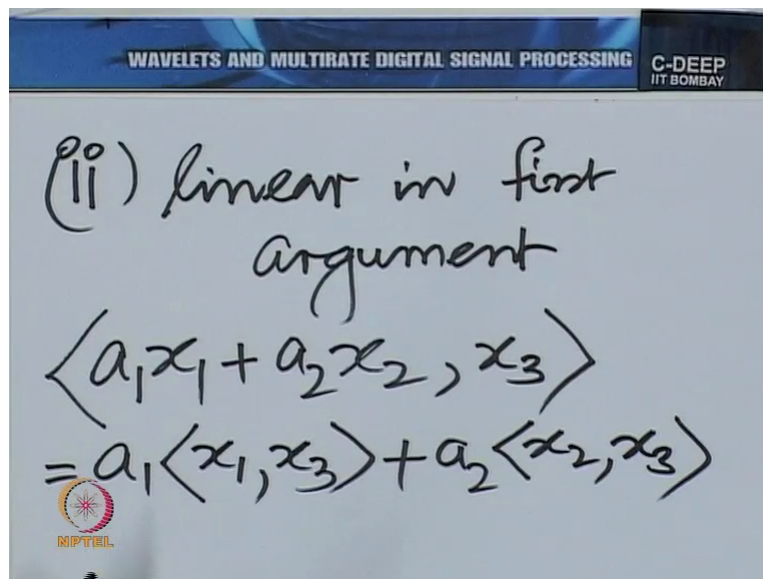 WAVELETS AND MULTIRATE DIGITAL SIGNAL PROCESSING
C-DEEP
IIT BOMBAY
(ii) linear in first
argument
⟨a₁x₁ + a₂x₂, x₃⟩
= a₁⟨x₁, x₃⟩ + a₂⟨x₂, x₃⟩
NPTEL